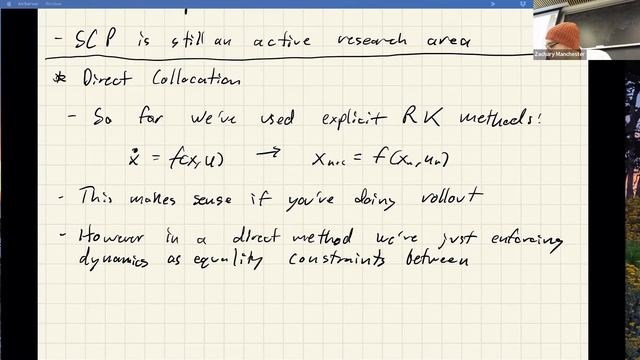 - SCP is still an active research area
* Direct Collocation
- So far we've used explicit RK methods:
ẋ = f(x,u) → xₙ₊₁ = f(xₙ,uₙ)
- This makes sense if you're doing rollout
- However in a direct method we're just enforcing
dynamics as equality constraints between
Zachary Manchester